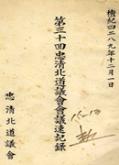 檀紀四二八九年十二月一日
第三十回忠淸北道議會會議速記錄
15-18
忠淸北道議會